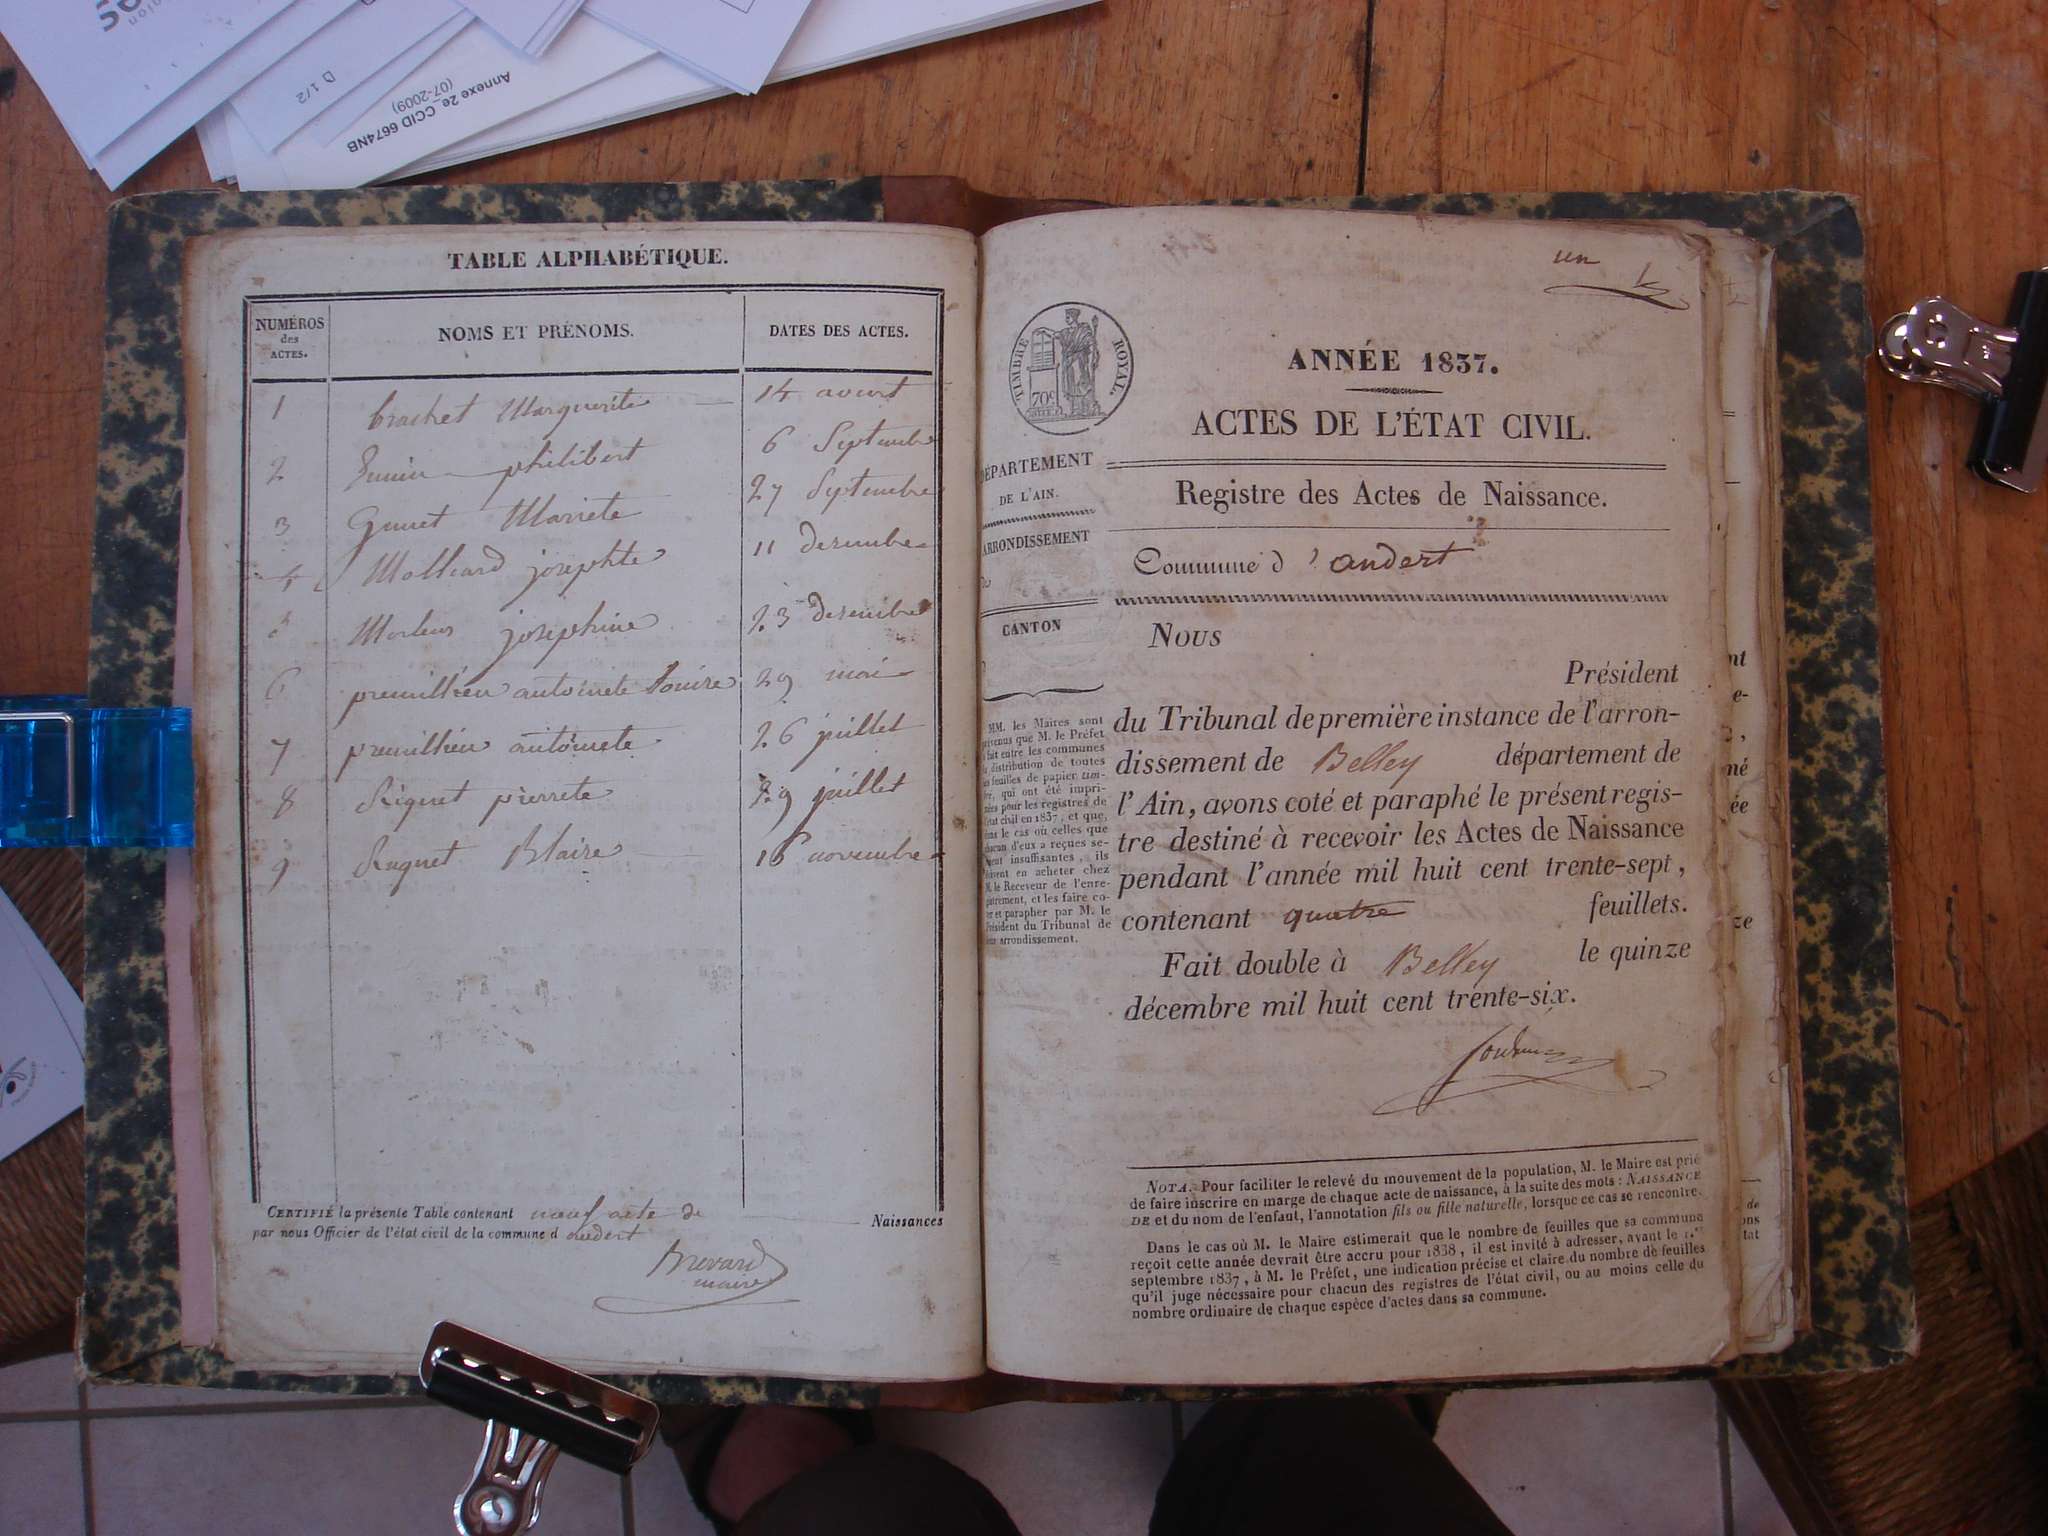 D 1/2
Annexe 2e_CCID 6674NB
(07-2009)
TABLE ALPHABÉTIQUE.
NUMÉROS
des
ACTES.
NOMS ET PRÉNOMS.
DATES DES ACTES.
1 brachet Marguerite 14 avout
2 philibert 6 Septembre
3 Mariete 27 Septembre
4 Molliard josephte 11 desembre
5 josephine 23 desembre
6 premillieu antoinete 29 mai
7 premillieu antoinete 26 juillet
8 pierrete 29 juillet
9 Blaise 16 novembre
CERTIFIÉ la présente Table contenant neuf acte de Naissances
par nous Officier de l'état civil de la commune d andert
Brevard
maire
un
TIMBRE ROYAL.
70c
ANNÉE 1837.
ACTES DE L'ÉTAT CIVIL.
DÉPARTEMENT
DE L'AIN.
Registre des Actes de Naissance.
ARRONDISSEMENT
Commune d'andert
CANTON
Nous
Président
du Tribunal de première instance de l'arron-
dissement de Belley département de
l'Ain, avons coté et paraphé le présent regis-
tre destiné à recevoir les Actes de Naissance
pendant l'année mil huit cent trente-sept,
contenant quatre feuillets.
Fait double à Belley le quinze
décembre mil huit cent trente-six.
MM. les Maires sont
prévenus que M. le Préfet
fait entre les communes
distribution de toutes
les feuilles de papier tim-
bré, qui ont été impri-
mées pour les registres de
l'état civil en 1837, et que,
dans le cas où celles que
chacun d'eux a reçues se-
raient insuffisantes, ils
doivent en acheter chez
M. le Receveur de l'enre-
gistrement, et les faire co-
ter et parapher par M. le
Président du Tribunal de
leur arrondissement.
NOTA. Pour faciliter le relevé du mouvement de la population, M. le Maire est prié
de faire inscrire en marge de chaque acte de naissance, à la suite des mots : NAISSANCE
DE et du nom de l'enfant, l'annotation fils ou fille naturelle, lorsque ce cas se rencontre.
Dans le cas où M. le Maire estimerait que le nombre de feuilles que sa commune
reçoit cette année devrait être accru pour 1838, il est invité à adresser, avant le 1.er
septembre 1837, à M. le Préfet, une indication précise et claire du nombre de feuilles
qu'il juge nécessaire pour chacun des registres de l'état civil, ou au moins celle du
nombre ordinaire de chaque espèce d'actes dans sa commune.